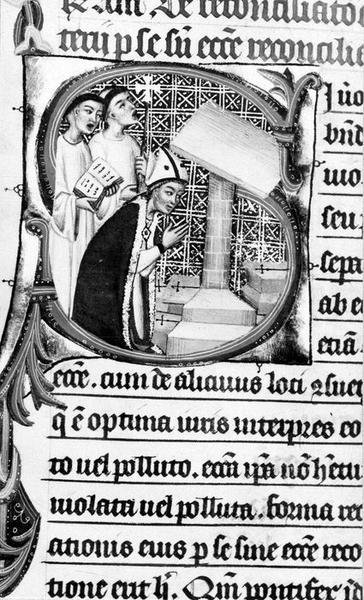 De reconciliatio
terii p se sũ ecc̃e reconcilia
uo
bñc
uio.
seu
sepa
ab e
cciã.
ecc̃e. cum de alicuius loci ꝯsuet
q̃ ẽ optima iuris interpres eo
to uel polluto. ecc̃a ip̃a nõ h̃etur
uiolata uel polluta. forma rec
ationis eius p se siue ecc̃e reco
tione erit h̃. Qm̃ pontifex